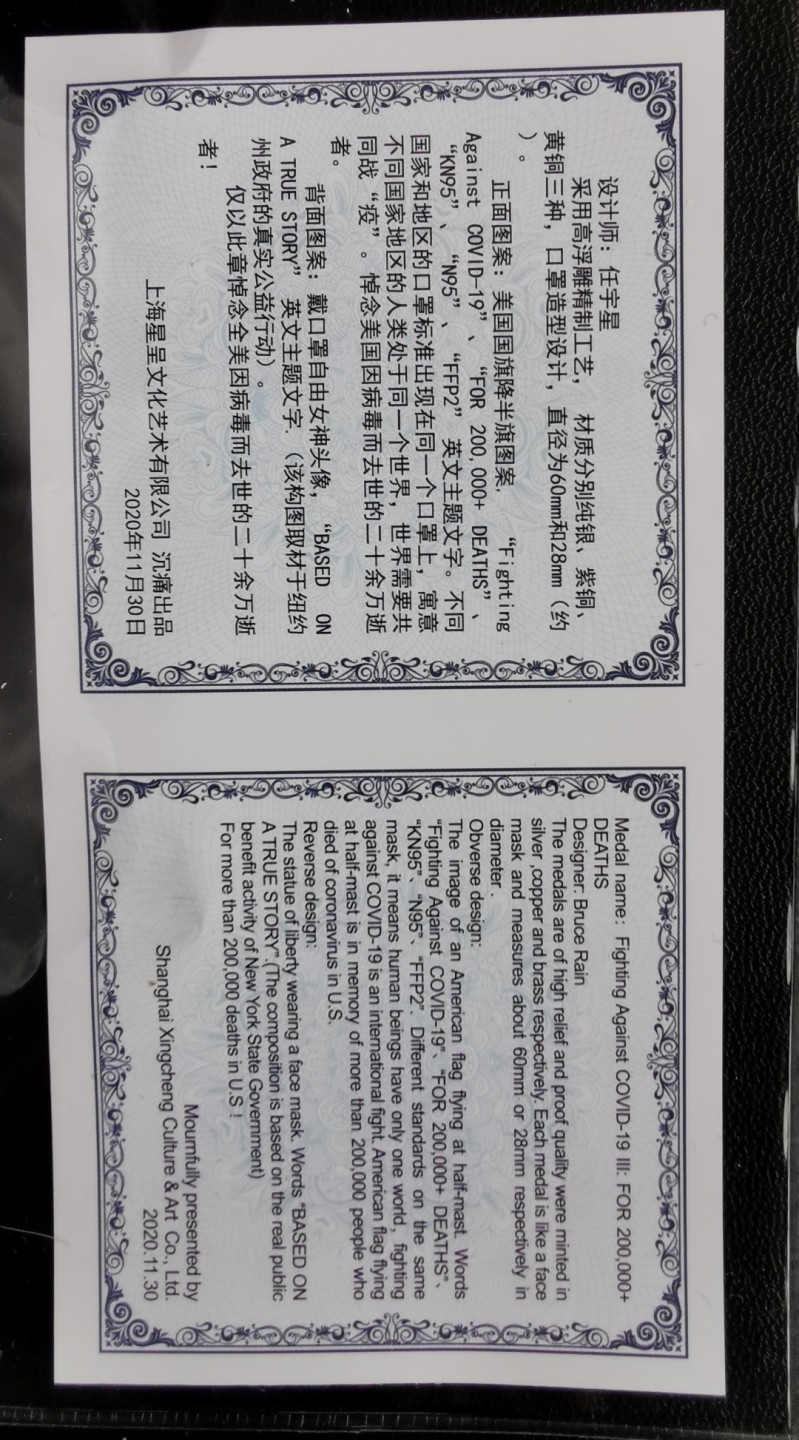 设计师：任宇星
采用高浮雕精制工艺， 材质分别纯银、紫铜、
黄铜三种，口罩造型设计，直径为60mm和28mm（约
）。
正面图案：美国国旗降半旗图案， “Fighting
Against COVID-19”、“FOR 200,000+ DEATHS”、
“KN95”、“N95”、“FFP2”英文主题文字。不同
国家和地区的口罩标准出现在同一个口罩上，寓意
不同国家地区的人类处于同一个世界，世界需要共
同战“疫”。悼念美国因病毒而去世的二十余万逝
者。
背面图案：戴口罩自由女神头像， “BASED ON
A TRUE STORY” 英文主题文字.（该构图取材于纽约
州政府的真实公益行动）。
仅以此章悼念全美因病毒而去世的二十余万逝
者！
上海星呈文化艺术有限公司 沉痛出品
2020年11月30日
Medal name: Fighting Against COVID-19 III: FOR 200,000+
DEATHS
Designer: Bruce Rain
The medals are of high relief and proof quality were minted in
silver ,copper and brass respectively. Each medal is like a face
mask and measures about 60mm or 28mm respectively in
diameter .
Obverse design:
The image of an American flag flying at half-mast. Words
“Fighting Against COVID-19”、“FOR 200,000+ DEATHS”、
“KN95”、“N95”、“FFP2”. Different standards on the same
mask, it means human beings have only one world, fighting
against COVID-19 is an international fight. American flag flying
at half-mast is in memory of more than 200,000 people who
died of coronavirus in U.S.
Reverse design:
The statue of liberty wearing a face mask. Words “BASED ON
A TRUE STORY”.(The composition is based on the real public
benefit activity of New York State Government)
For more than 200,000 deaths in U.S !
Mournfully presented by
Shanghai Xingcheng Culture & Art Co., Ltd.
2020.11.30